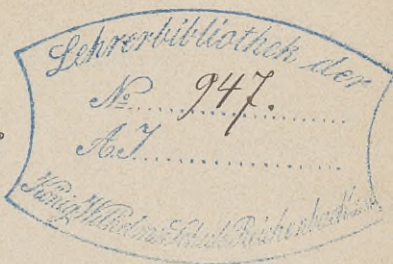 Lehrerbibliothek der
No 947.
A.J
König Wilhelms Schule Reichenbach